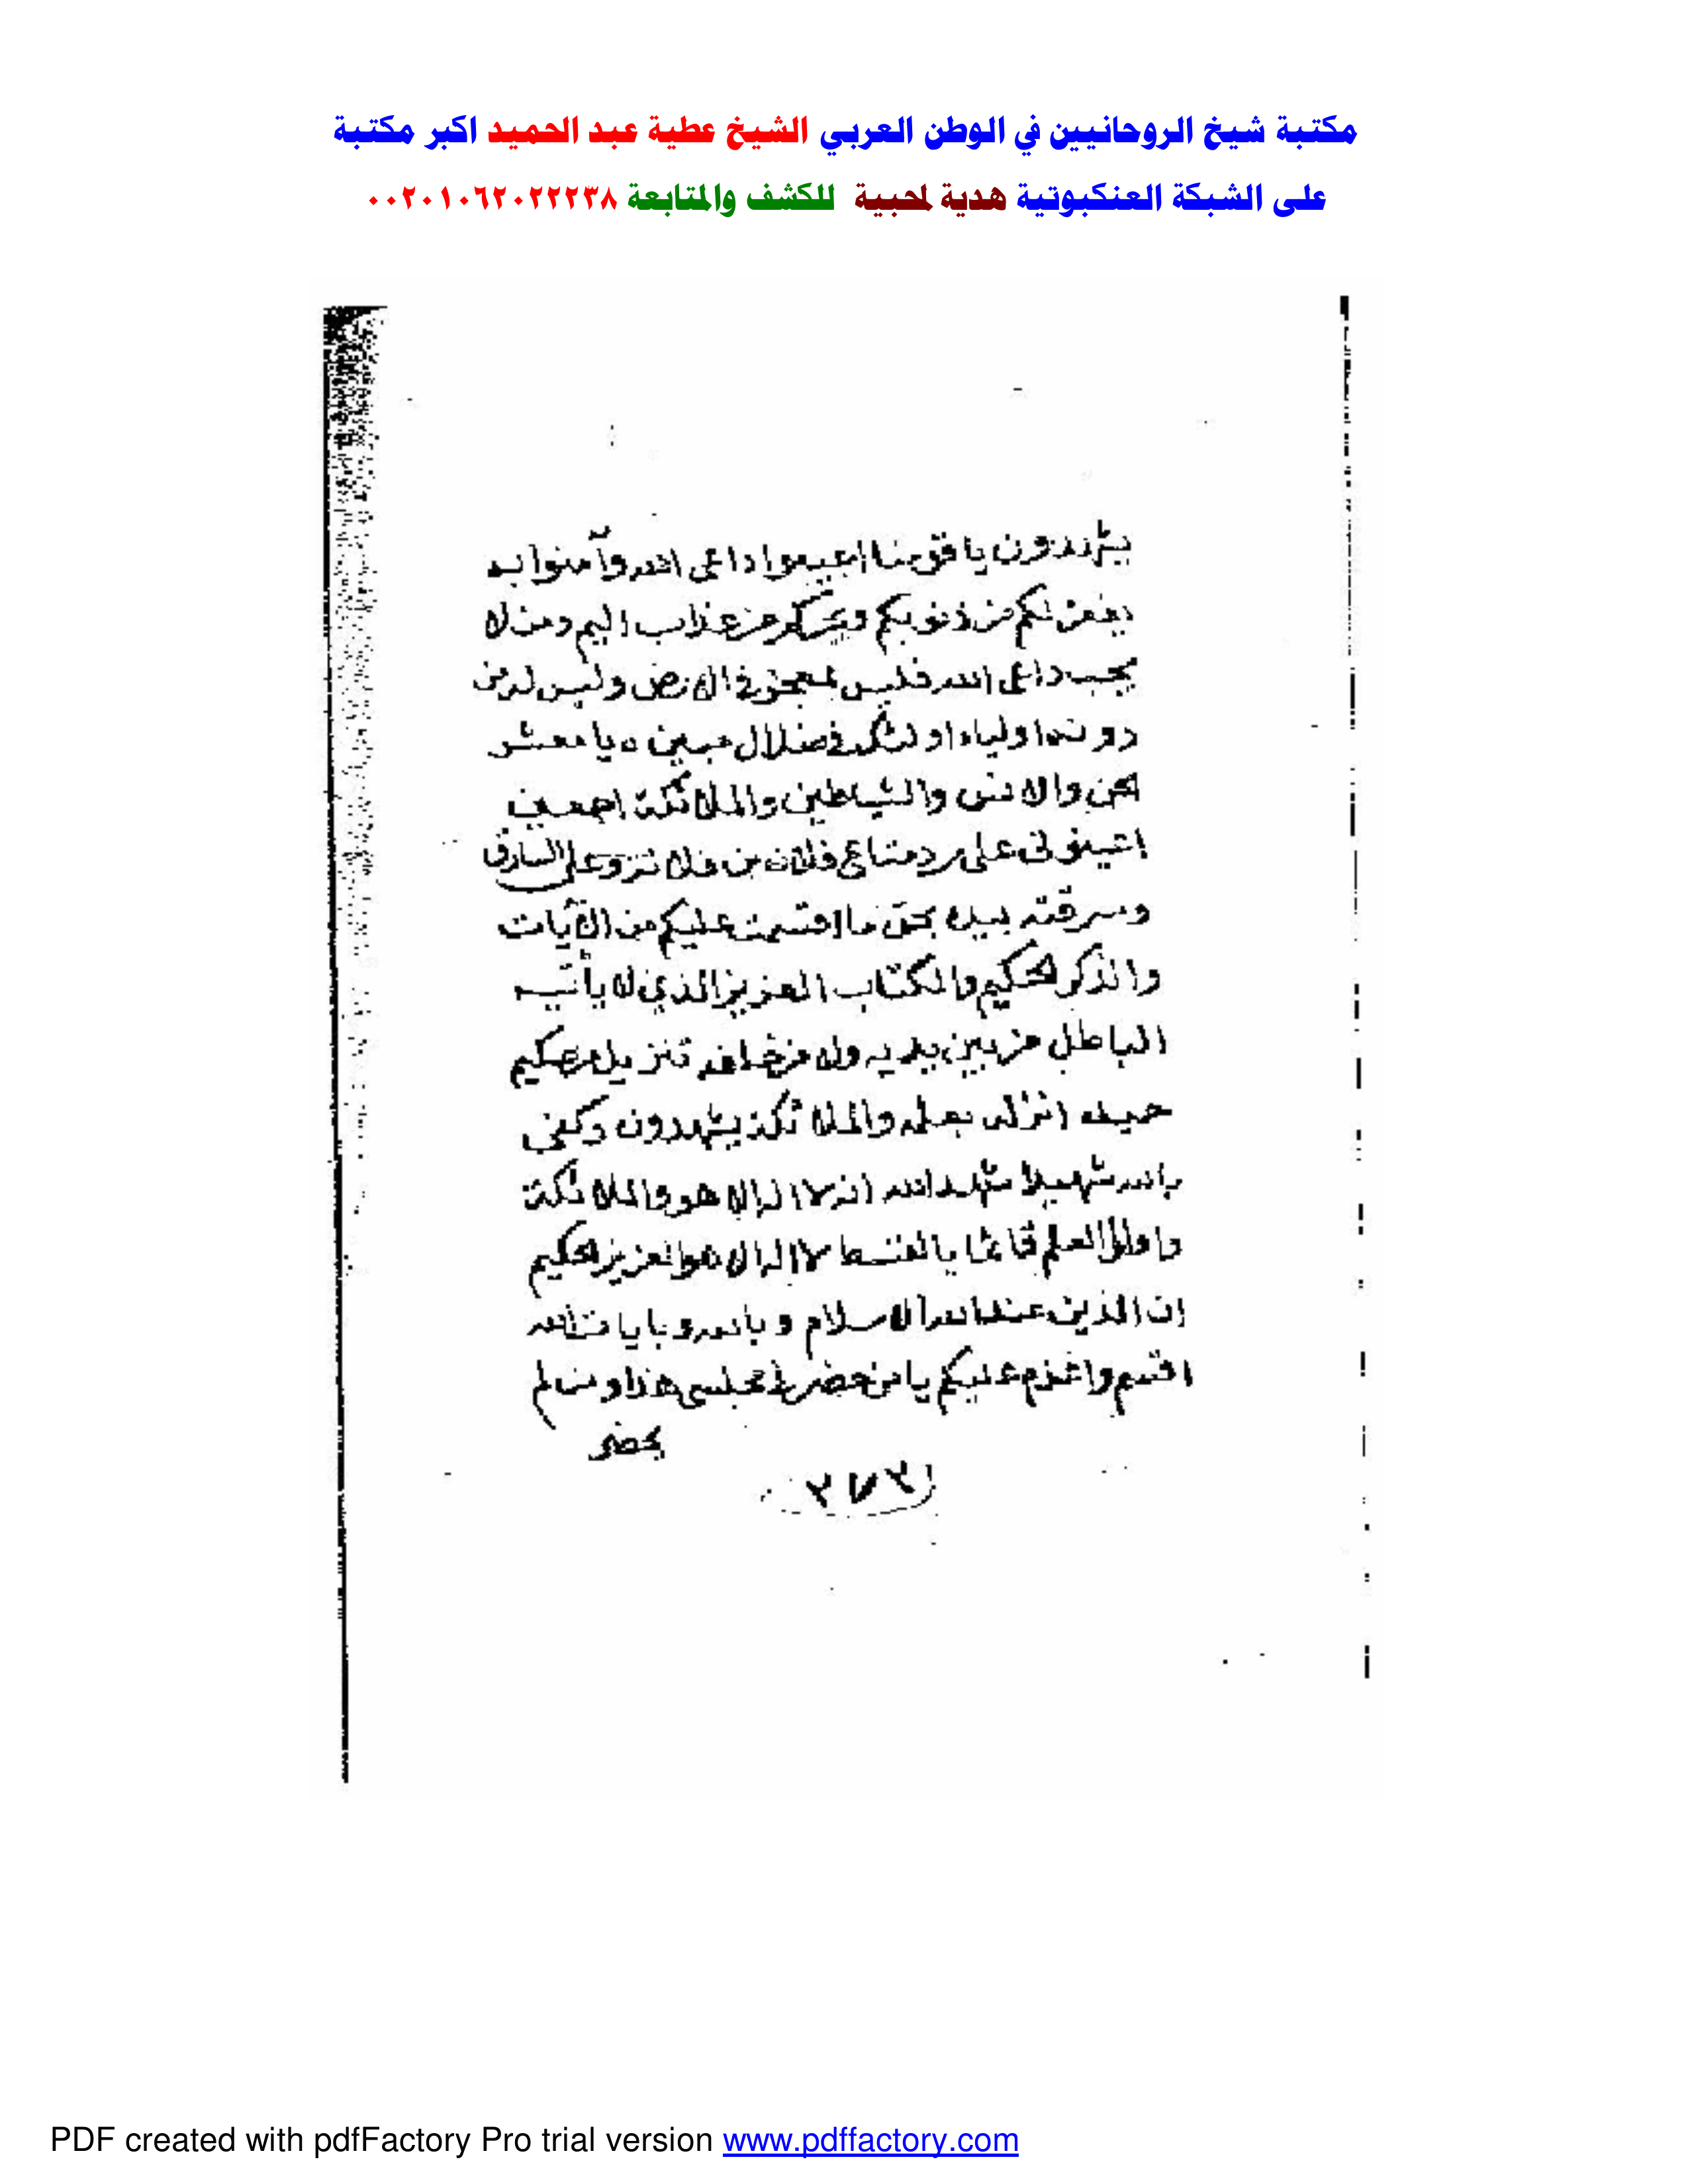 مكتبة شيخ الروحانيين في الوطن العربي الشيخ عطية عبد الحميد اكبر مكتبة
على الشبكة العنكبوتية هدية لمحبية للكشف والمتابعة ٠٠٢٠١٠٦٢٠٢٢٢٣٨
يشهدون يا قومنا اجيبوا داعى الله وآمنوا به
يغفر لكم من ذنوبكم ويجركم من عذاب اليم ومن لا
يجب داعى الله فليس بمعجز فى الارض وليس له من
دونه اولياء اولئك فى ضلال مبين ه يا معشر
الجن والانس والشياطين والملائكة اجمعين
اعينونى على رد متاع فلان بن فلانة وعلى السارق
وسرقته بيده بحق ما اقسمت عليكم من الآيات
والذكر الحكيم والكتاب العزيز الذي لا يأتيه
الباطل من بين يديه ولا من خلفه تنزيل من حكيم
حميد انزله بعلمه والملائكة يشهدون وكفى
بالله شهيدا شهد الله انه لا اله الا هو والملائكة
واولوا العلم قائما بالقسط لا اله الا هو العزيز الحكيم
ان الدين عند الله الاسلام وبالله وبايات الله
اقسم واعزم عليكم يا من حضر فى مجلسى هذا ومن لم
يحضر
٢٧٢
PDF created with pdfFactory Pro trial version www.pdffactory.com